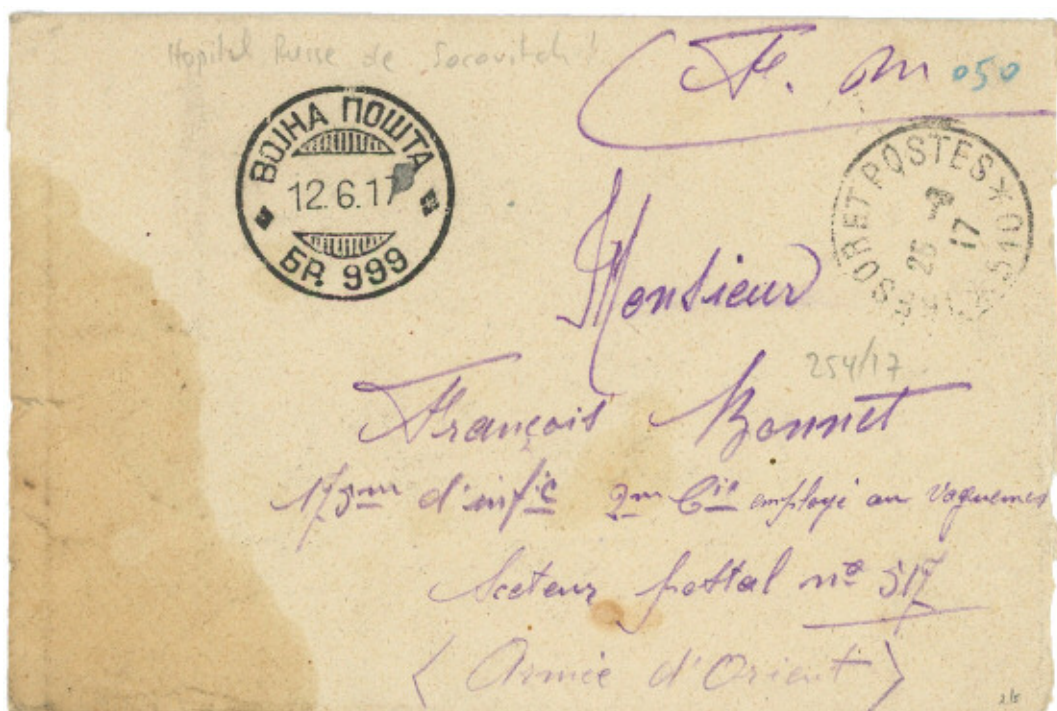 Hopital Russe de Socovitch
F. M 050
ВОЈНА ПОШТА
12.6.17
БР. 999
TRESOR ET POSTES * 510 *
25
17
Monsieur
254/17
François Bonnet
175me d'infie 2me Cie employé au Vaguemes
Secteur postal no 517
(Armée d'Orient)